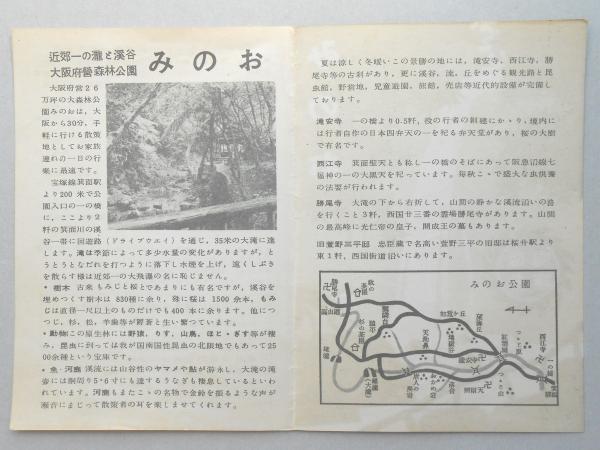 近郊一の瀧と溪谷
大阪府營森林公園
みのお
大阪府営26
万坪の大森林公
園みのおは，大
阪から30分，手
軽に行ける散策
地としてお家族
連れの一日の行
楽に最適です。
宝塚線箕面駅
より200米で公
園入口の一の橋
に，ここより2
粁の箕面川の溪
谷一帯に回遊路（ドライブウエイ）を通じ，35米の大滝に達
します。滝は季節によって多少水量の変化がありますが，と
うとうとなだれを打つように落下し水煙を上げ，遠くしぶき
を散らす様は近郊一の大飛瀑の名に恥じません。
・樹木 古来もみじと桜とであまりにも有名ですが，溪谷を
埋めつくす樹木は830種に余り，殊に桜は1500余本，もみ
じは直径一尺以上のものだけでも400本に余ります。他につ
つじ，杉，松，羊歯等が鬱蒼と生い繁っています。
・動物 この原生林には野猿，りす，山鳥，ほと・ぎす等が棲
み，昆虫に到っては我が国南国性昆虫の北限地でもあって25
00余種という宝庫です。
・魚・河鹿 溪流には山谷性のヤマメや鮎が游永し，大滝の滝
壺には胴周り5・6寸にも達するうなぎも棲息しているといわ
れています。河鹿もまたこゝの名物で金鈴を振るような声が
瀬音にまじって散策者の耳を楽しませてくれます。
夏は涼しく冬暖いこの景勝の地には，滝安寺，西江寺，勝
尾寺等の古刹があり，更に溪谷，流，丘をめぐる観光路と昆
虫館，野営地，児童遊園，旅館，売店等近代的設備が完備し
ております。
滝安寺 一の橋より0.5粁，役の行者の創建にかゝり，境内に
は行者自作の日本四弁天の一を祀る弁天堂があり，桜の大樹
で有名です。
西江寺 箕面聖天とも称し一の橋のそばにあって阪急沿線七
福神の一の大黒天を祀っています。毎秋こゝで盛大な虫供養
の法要が行われます。
勝尾寺 大滝の下から右折して，山間の静かな溪流沿いの路
を行くこと3粁，西国廿三番の霊場勝尾寺があります。山間
の最高峰に光仁帝の皇子，開成王の墓もあります。
旧萱野三平邸 忠臣蔵で名高い萱野三平の旧邸は桜井駅より
東1粁，西国街道沿いにあります。
みのお公園
勝尾寺
箕面山道
萩の茶屋
杉の茶屋
如意ケ丘
天狗鼻
望海丘
滝安寺
つつじ原
西江寺
一の橋
箕面駅
落合
つつじ山
滝道